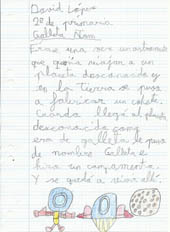 David López
2º de primaria
Galleta Ñam
Erase una vez un astronauta
que quería viajar a un
planeta desconocido y
en la Tierra se puso
a fabricar un cohete.
Cuando llegó al planeta
desconocido como
era de galleta le puso
de nombre Galleta e
hizo un campamento.
Y se quedó a vivir allí.